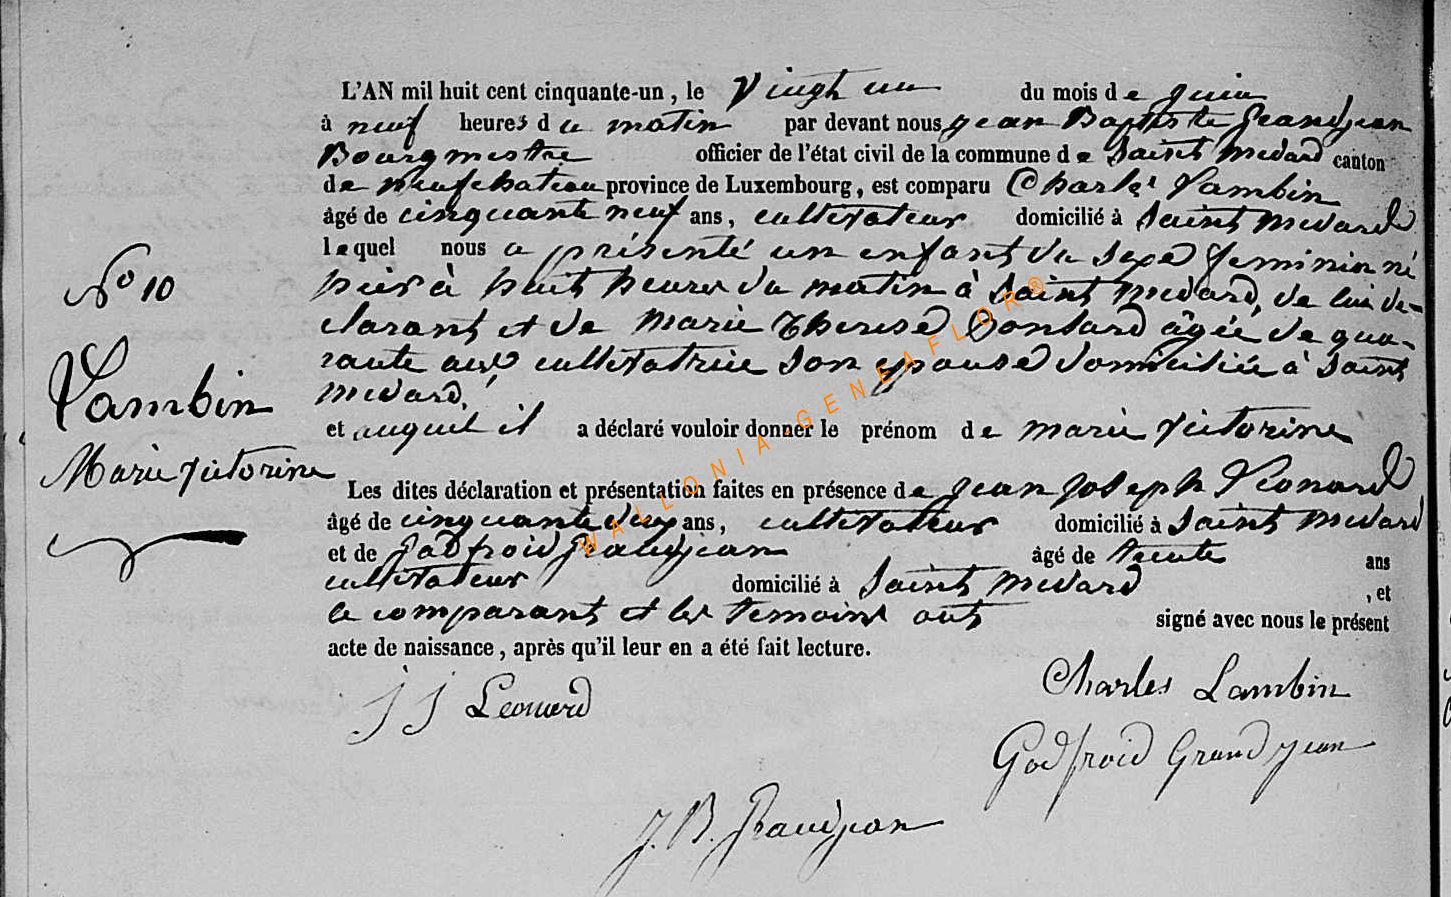 L'AN mil huit cent cinquante-un, le Vingt un du mois de juin
à neuf heures du matin par devant nous jean Baptiste Grandjean
Bourgmestre officier de l'état civil de la commune de Saint medard canton
de Neufchateau province de Luxembourg, est comparu Charles Lambin
âgé de cinquante neuf ans, cultivateur domicilié à Saint medard
lequel nous a présenté un enfant du sexe feminin né
hier à huit heures du matin à Saint medard, de lui dé-
clarant et de Marie Therese âgée de qua-
rante cultivatrice son epouse domiciliée à Saint
medard,
N° 10
Lambin
Marie Victorine
et auquel il a déclaré vouloir donner le prénom de marie Victorine
Les dites déclaration et présentation faites en présence de jean joseph Leonard
âgé de cinquante deux ans, cultivateur domicilié à Saint medard
et de Godfroid Grandjean âgé de trente ans
cultivateur domicilié à Saint medard, et
le comparant et les temoins ont signé avec nous le présent
acte de naissance, après qu'il leur en a été fait lecture.
J J Leonard
Charles Lambin
Godfroid Grandjean
J. B. Grandjean
WALLONIA-GENEAFLOR®